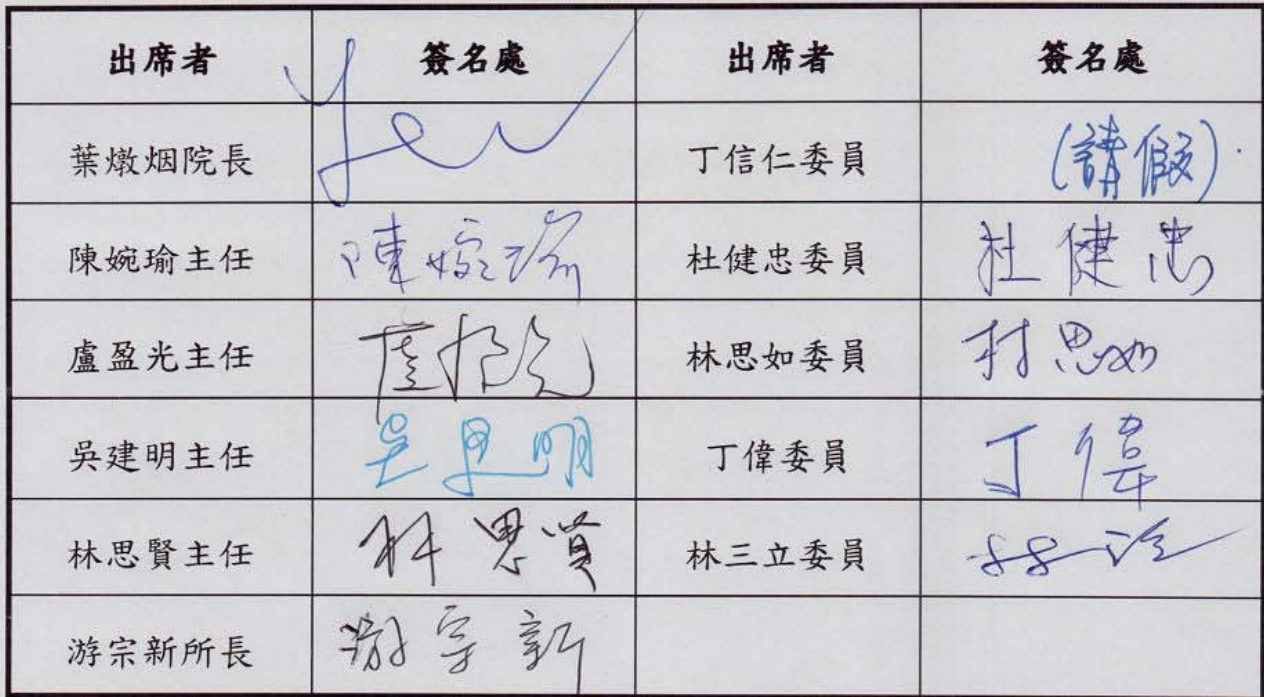 出席者 簽名處 出席者 簽名處
葉燉烟院長 Yeu 丁信仁委員 (請假)
陳婉瑜主任 陳婉瑜 杜健忠委員 杜健忠
盧盈光主任 林思如委員 林思如
吳建明主任 吳建明 丁偉委員 丁偉
林思賢主任 林思賢 林三立委員
游宗新所長 游宗新